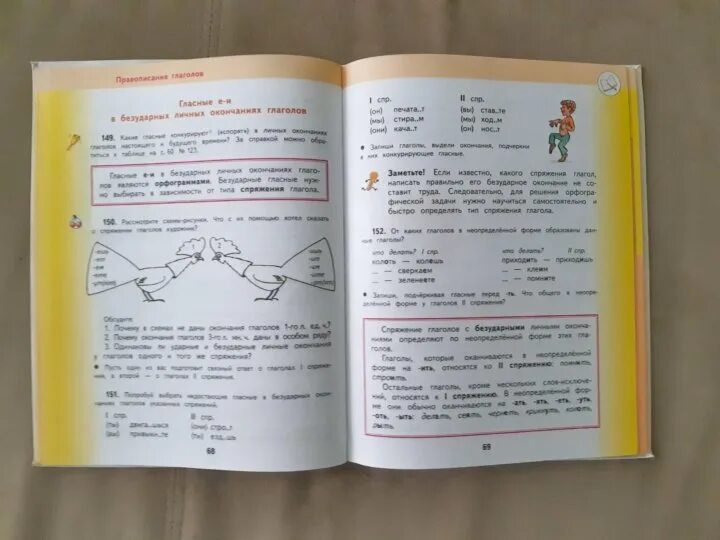 Правописание глаголов
Гласные е-и
в безударных личных окончаниях глаголов
149. Какие гласные конкурируют («спорят») в личных окончаниях
глаголов настоящего и будущего времени? За справкой можно обра-
титься к таблице на с. 60 № 123.
Гласные е-и в безударных личных окончаниях глаго-
лов являются орфограммами. Безударные гласные нуж-
но выбирать в зависимости от типа спряжения глагола.
150. Рассмотрите схемы-рисунки. Что с их помощью хотел сказать
о спряжении глаголов художник?
1 2
Обсудите:
1. Почему в схемах не даны окончания глаголов 1-го л. ед. ч.?
2. Почему окончания глаголов 3-го л. мн. ч. даны в особом ряду?
3. Одинаковы ли ударные и безударные личные окончания
у глаголов одного и того же спряжения?
Пусть один из вас подготовит связный ответ о глаголах I спряже-
ния, а второй — о глаголах II спряжения.
151. Попробуй выбрать недостающие гласные в безударных оконча-
ниях глаголов указанных спряжений.
I спр. II спр.
(ты) двига..шься (они) стро..т
(вы) привыкн..те (ты) езд..шь
68
I спр. II спр.
(он) печата..т (вы) став..те
(мы) стира..м (мы) ход..м
(они) кача..т (он) нос..т
Запиши глаголы, выдели окончания, подчеркни
в них конкурирующие гласные.
Заметьте! Если известно, какого спряжения глагол,
написать правильно его безударное окончание не со-
ставит труда. Следовательно, для решения орфогра-
фической задачи нужно научиться самостоятельно и
быстро определять тип спряжения глагола.
152. От каких глаголов в неопределённой форме образованы дан-
ные глаголы?
что делать? I спр. что делать? II спр.
колоть — колешь приходить — приходишь
... — сверкаем ... — клеим
... — зеленеете ... — помните
Запиши, подчёркивая гласные перед -ть. Что общего в неопре-
делённой форме у глаголов II спряжения?
Спряжение глаголов с безударными личными оконча-
ниями определяют по неопределённой форме этих гла-
голов.
Глаголы, которые оканчиваются в неопределённой
форме на -ить, относятся ко II спряжению: помнить,
строить.
Остальные глаголы, кроме нескольких слов-исключе-
ний, относятся к I спряжению. В неопределённой фор-
ме они обычно оканчиваются на -ать, -ять, -еть, -уть,
-оть, -ыть: делать, сеять, чернеть, крикнуть, колоть,
рыть.
69